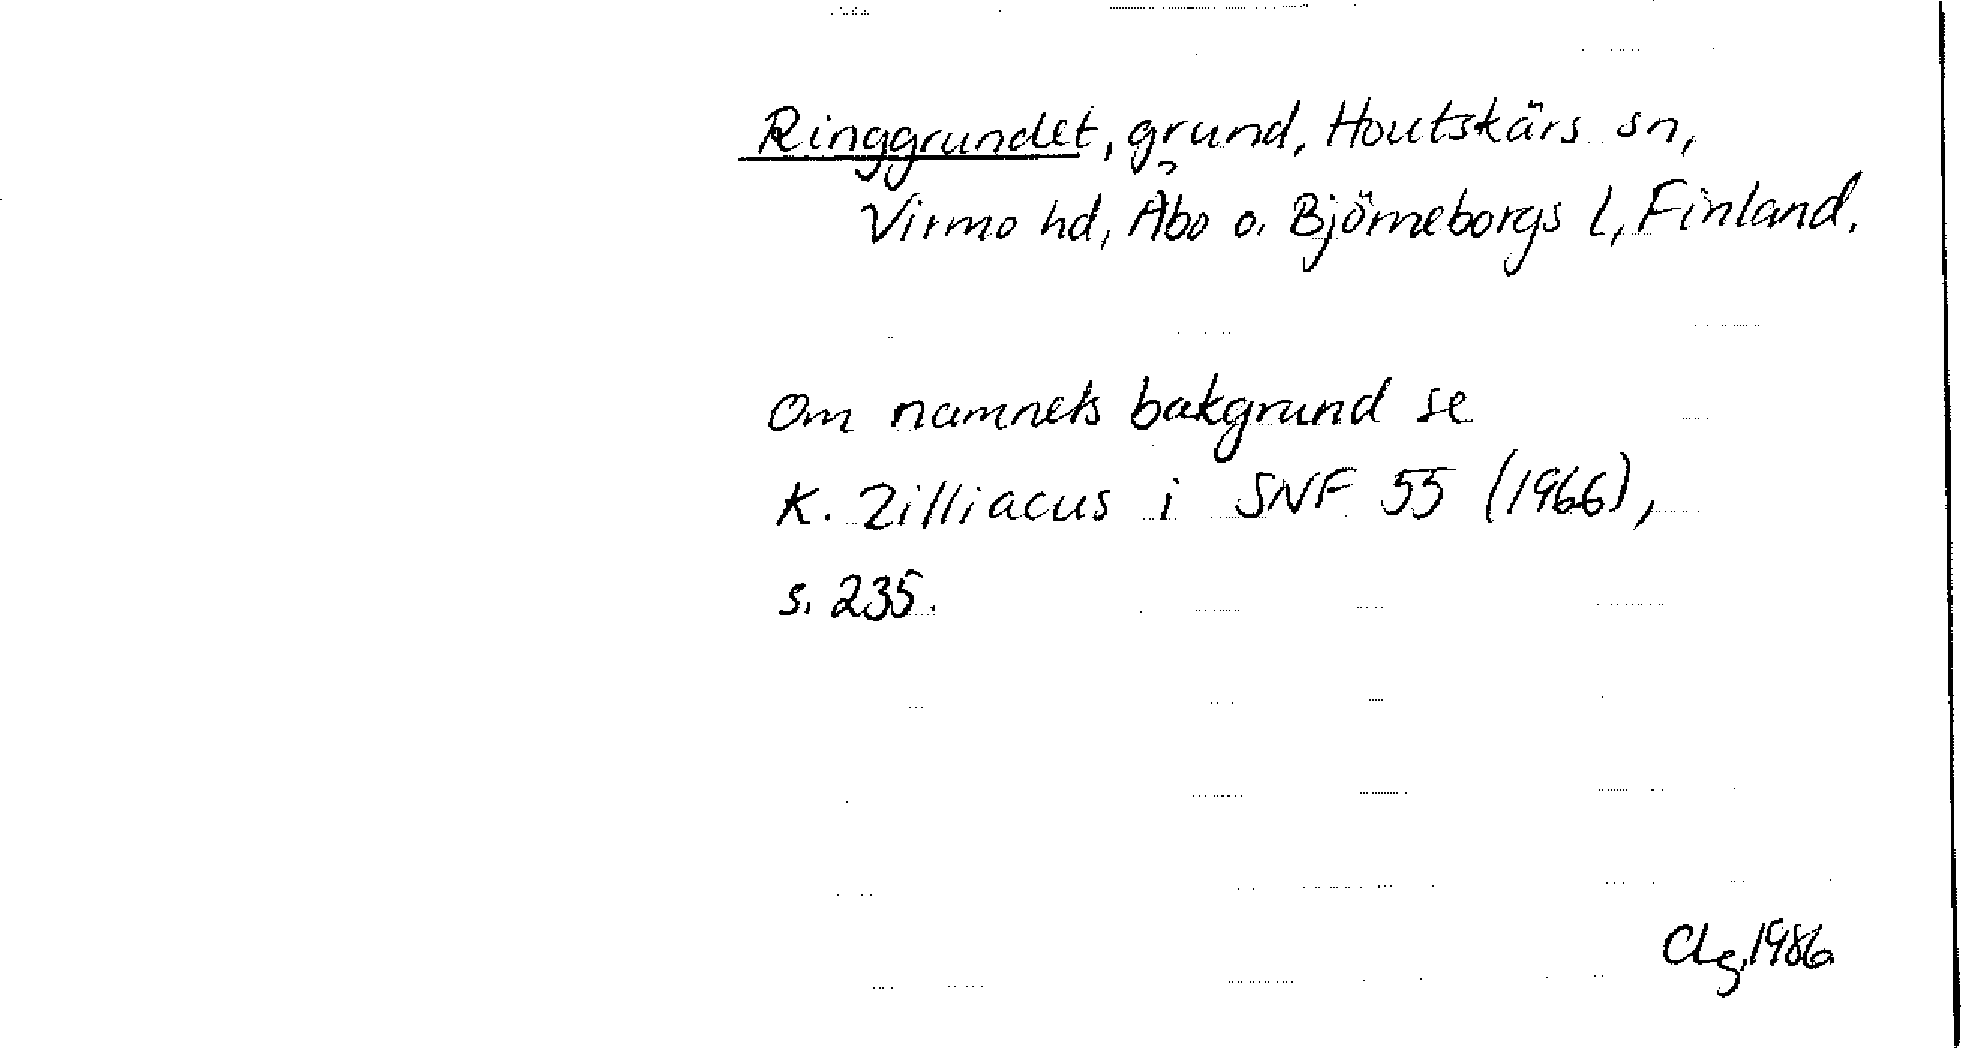 Ringgrundet, grund, Houtskärs sn,
Virmo hd, Åbo o. Björneborgs l, Finland.
Om namnets bakgrund se
K. Zilliacus i SNF 55 (1966),
s. 235.
Clg. 1986